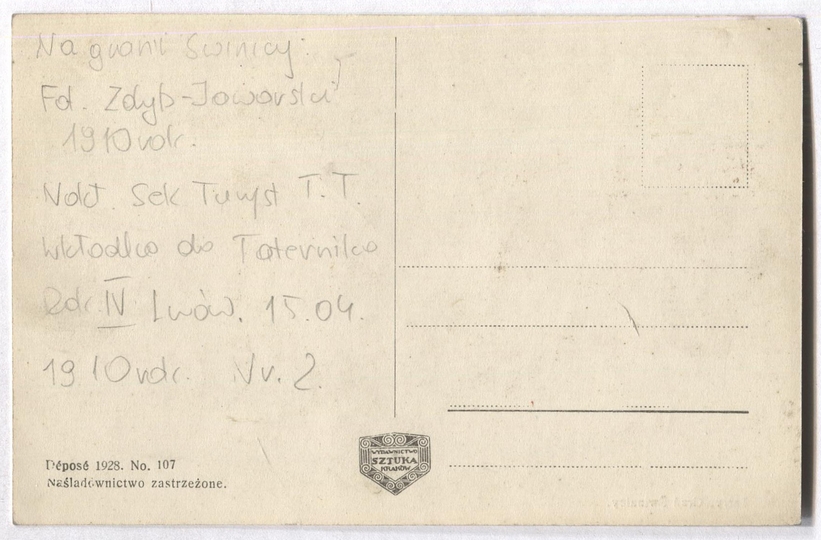 Na grani Świnicy.
Fot. Zdyb-Jaworski
1910 rok.
Nakł. Sek Turyst T.T.
Wkładka do Taternika
Rok IV Lwów. 15.04.
1910 rok. Nr. 2.
Déposé 1928. No. 107
Naśladownictwo zastrzeżone.
WYDAWNICTWO
SZTUKA
KRAKÓW